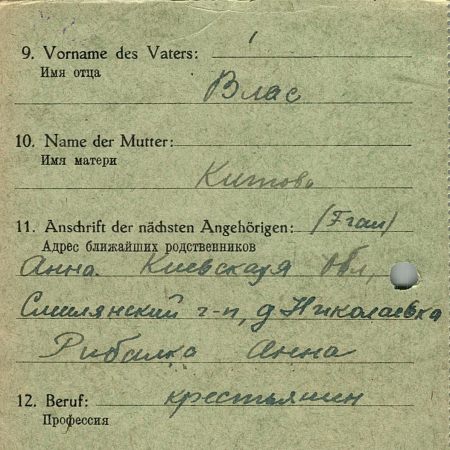 9. Vorname des Vaters:
Имя отца
Влас
10. Name der Mutter:
Имя матери
Китова
11. Anschrift der nächsten Angehörigen: (Frau)
Адрес ближайших родственников
Анна. Киевская обл,
Смилянский г-п, д. Николаевка
Рибалка Анна
12. Beruf: крестьянин
Профессия